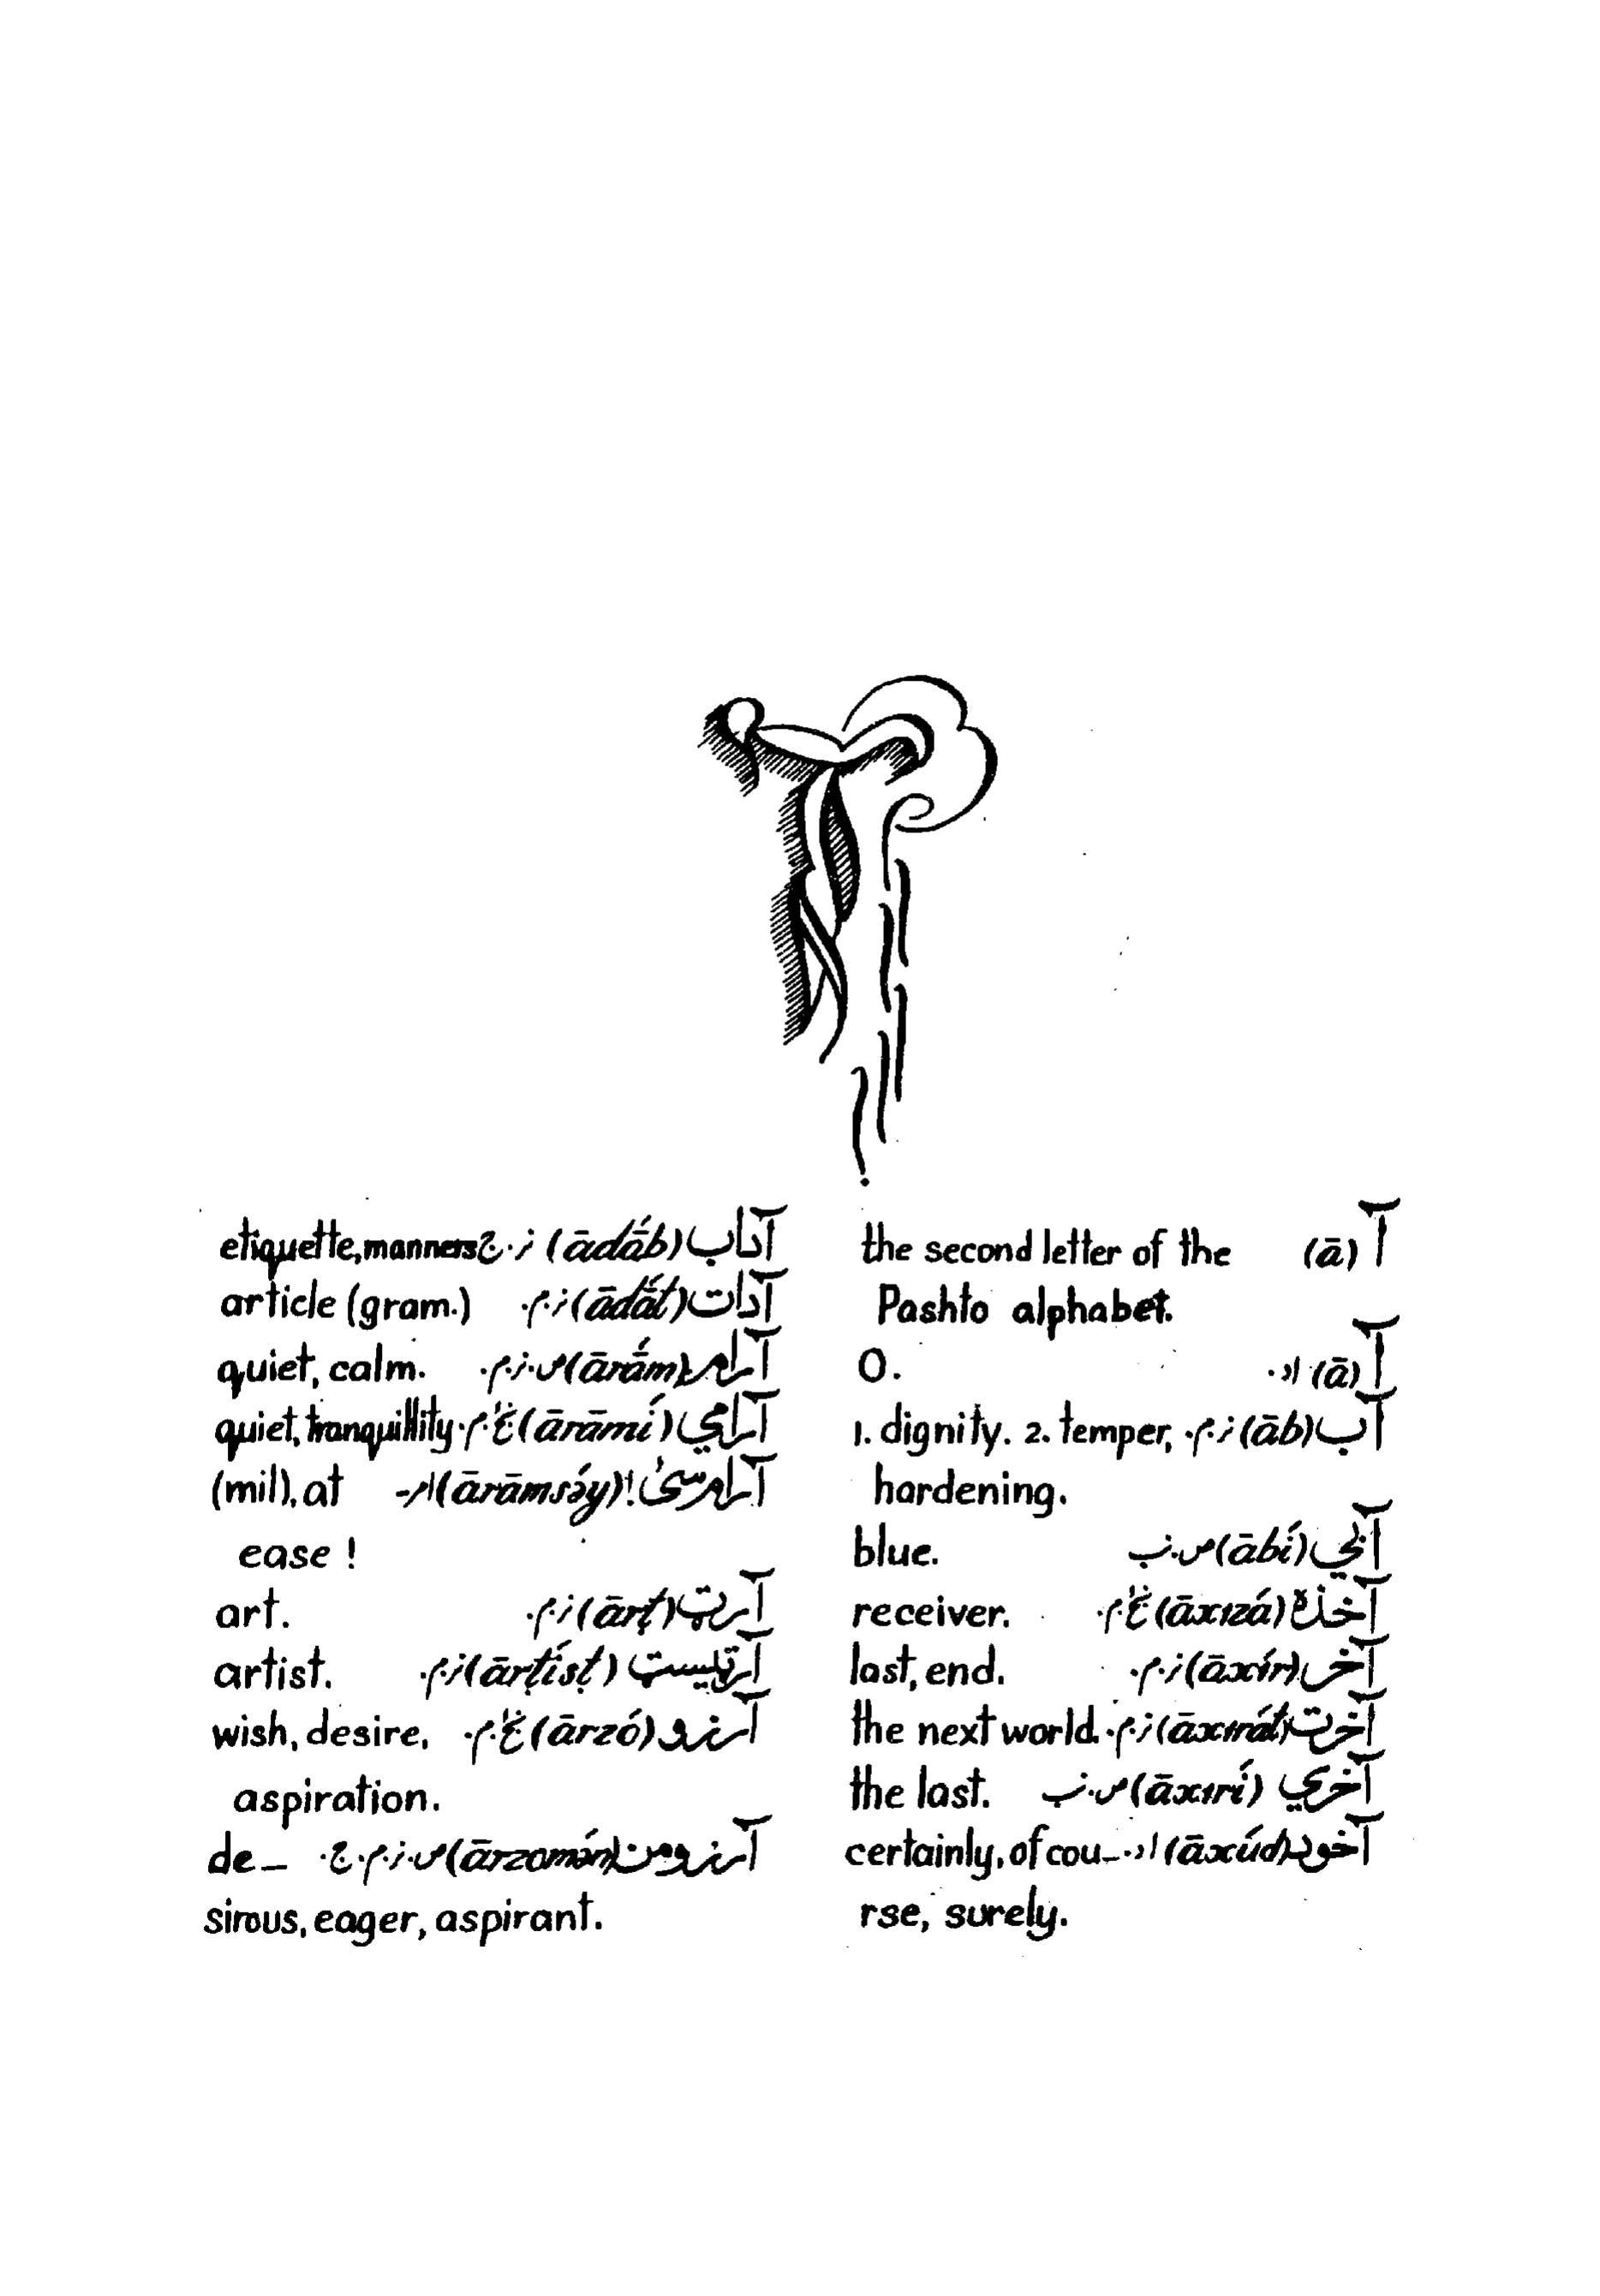 آ (ā) the second letter of the
Pashto alphabet.
آ (ā) اد. O.
آب (āb) ز.م. 1. dignity. 2. temper,
hardening.
آبي (ābí) ص.نب blue.
آخذه (āxızá) ع.م. receiver.
آخر (āxír) ز.م. last, end.
آخرت (āxırát) ز.م. the next world.
آخري (āxırí) ص.نب the last.
آخود (āxúd) اد. certainly, of cou-
rse, surely.
آداب (ādā́b) ز.ج etiquette, manners
آدات (ādā́t) ز.م. article (gram.)
آرام (ārā́m) ص.ز.م. quiet, calm.
آرامي (ārāmí) ع.م. quiet, tranquillity
آرام سئ! (ārāmsə́y) (mil). at
ease !
آرټ (ārṭ) ز.م. art.
آرټيسټ (ārṭísṭ) ز.م. artist.
آرزو (ārzó) ع.م. wish, desire,
aspiration.
آرزومن (ārzomán) ص.ز.م.ج. de-
sirous, eager, aspirant.